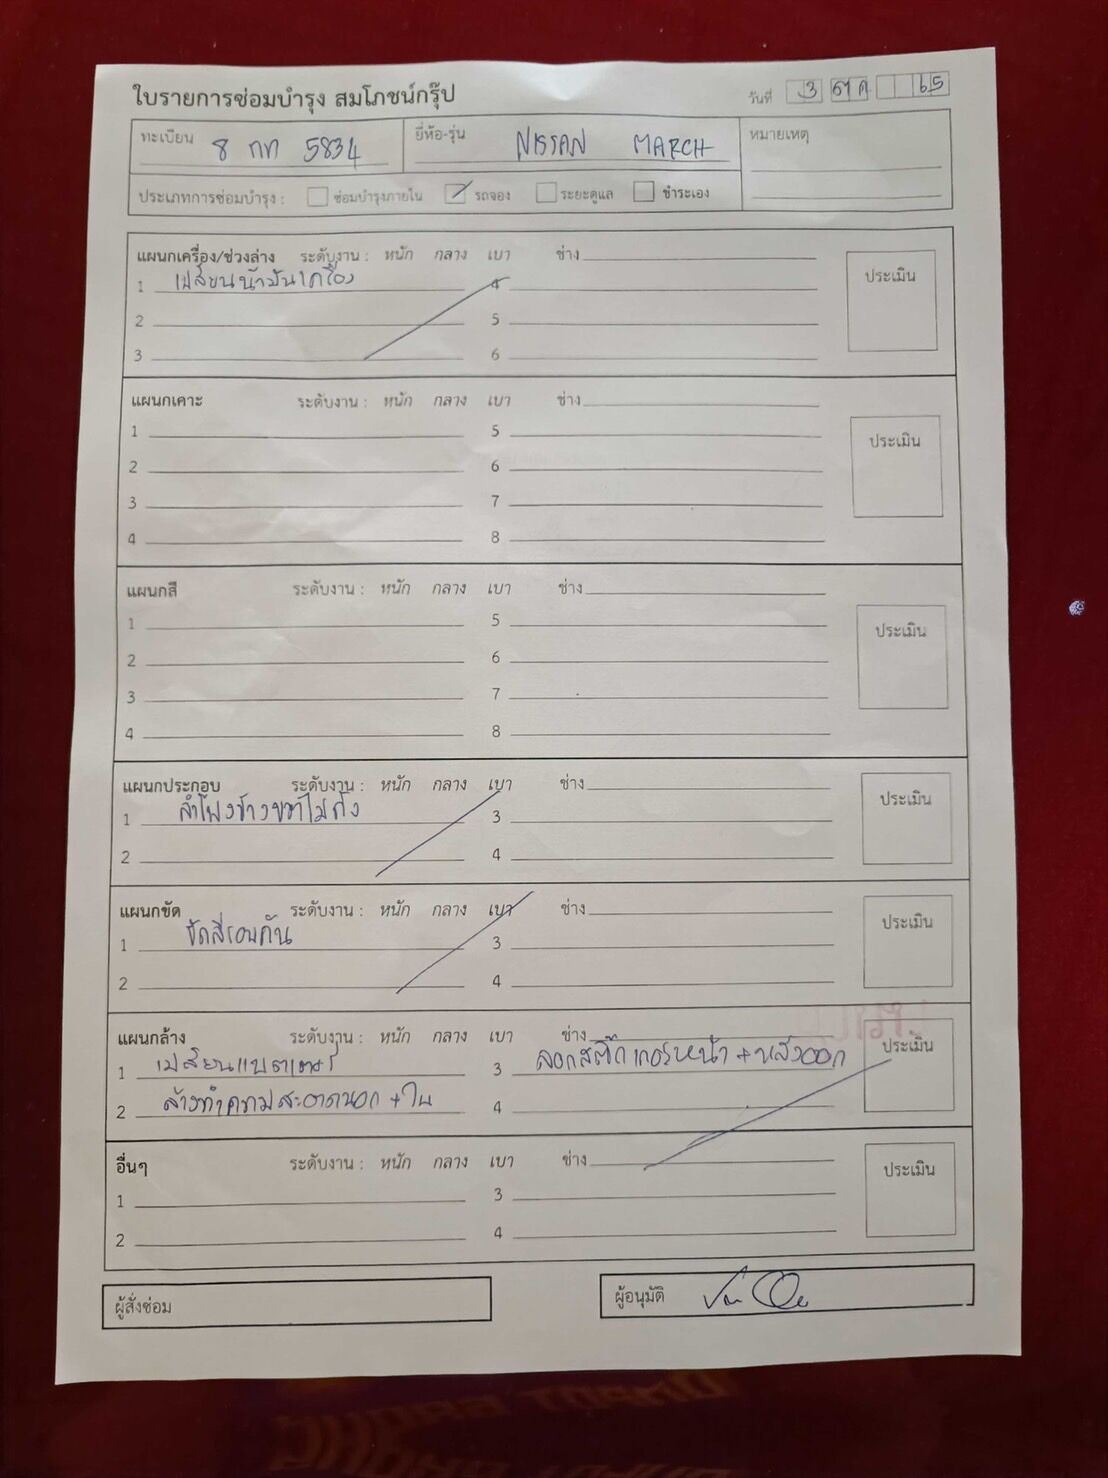 ใบรายการซ่อมบำรุง สมโภชน์กรุ๊ป
วันที่ 3 ตค 65
ทะเบียน 8 กก 5834 ยี่ห้อ-รุ่น NISSAN MARCH หมายเหตุ
ประเภทการซ่อมบำรุง : ซ่อมบำรุงภายใน รถจอง ระยะดูแล ชำระเอง
แผนกเครื่อง/ช่วงล่าง ระดับงาน : หนัก กลาง เบา ช่าง ประเมิน
1 เปลี่ยนน้ำมันเครื่อง 4
2 5
3 6
แผนกเคาะ ระดับงาน : หนัก กลาง เบา ช่าง ประเมิน
1 5
2 6
3 7
4 8
แผนกสี ระดับงาน : หนัก กลาง เบา ช่าง ประเมิน
1 5
2 6
3 7
4 8
แผนกประกอบ ระดับงาน : หนัก กลาง เบา ช่าง ประเมิน
1 ลำโพงข้างขวาไม่ดัง 3
2 4
แผนกขัด ระดับงาน : หนัก กลาง เบา ช่าง ประเมิน
1 ขัดสีรอบคัน 3
2 4
แผนกล้าง ระดับงาน : หนัก กลาง เบา ช่าง ประเมิน
1 เปลี่ยนแบตเตอรี่ 3 ลอกสติ๊กเกอร์หน้า + หลังออก
2 ล้างทำความสะอาดนอก + ใน 4
อื่นๆ ระดับงาน : หนัก กลาง เบา ช่าง ประเมิน
1 3
2 4
ผู้สั่งซ่อม ผู้อนุมัติ